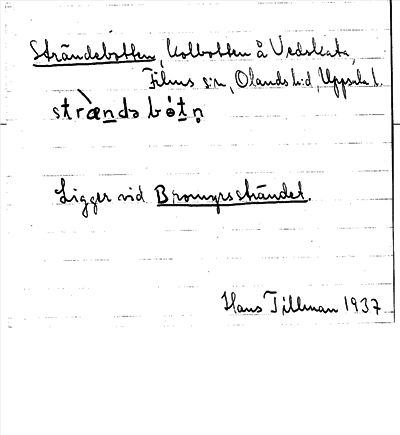 Strändebotten, Kolbotten å Vedskata,
Films sn, Olands hd, Uppsala l.
stræ̀ndə bót̠n̥
Ligger vid Bromyrsständet.
Hans Tillman 1937